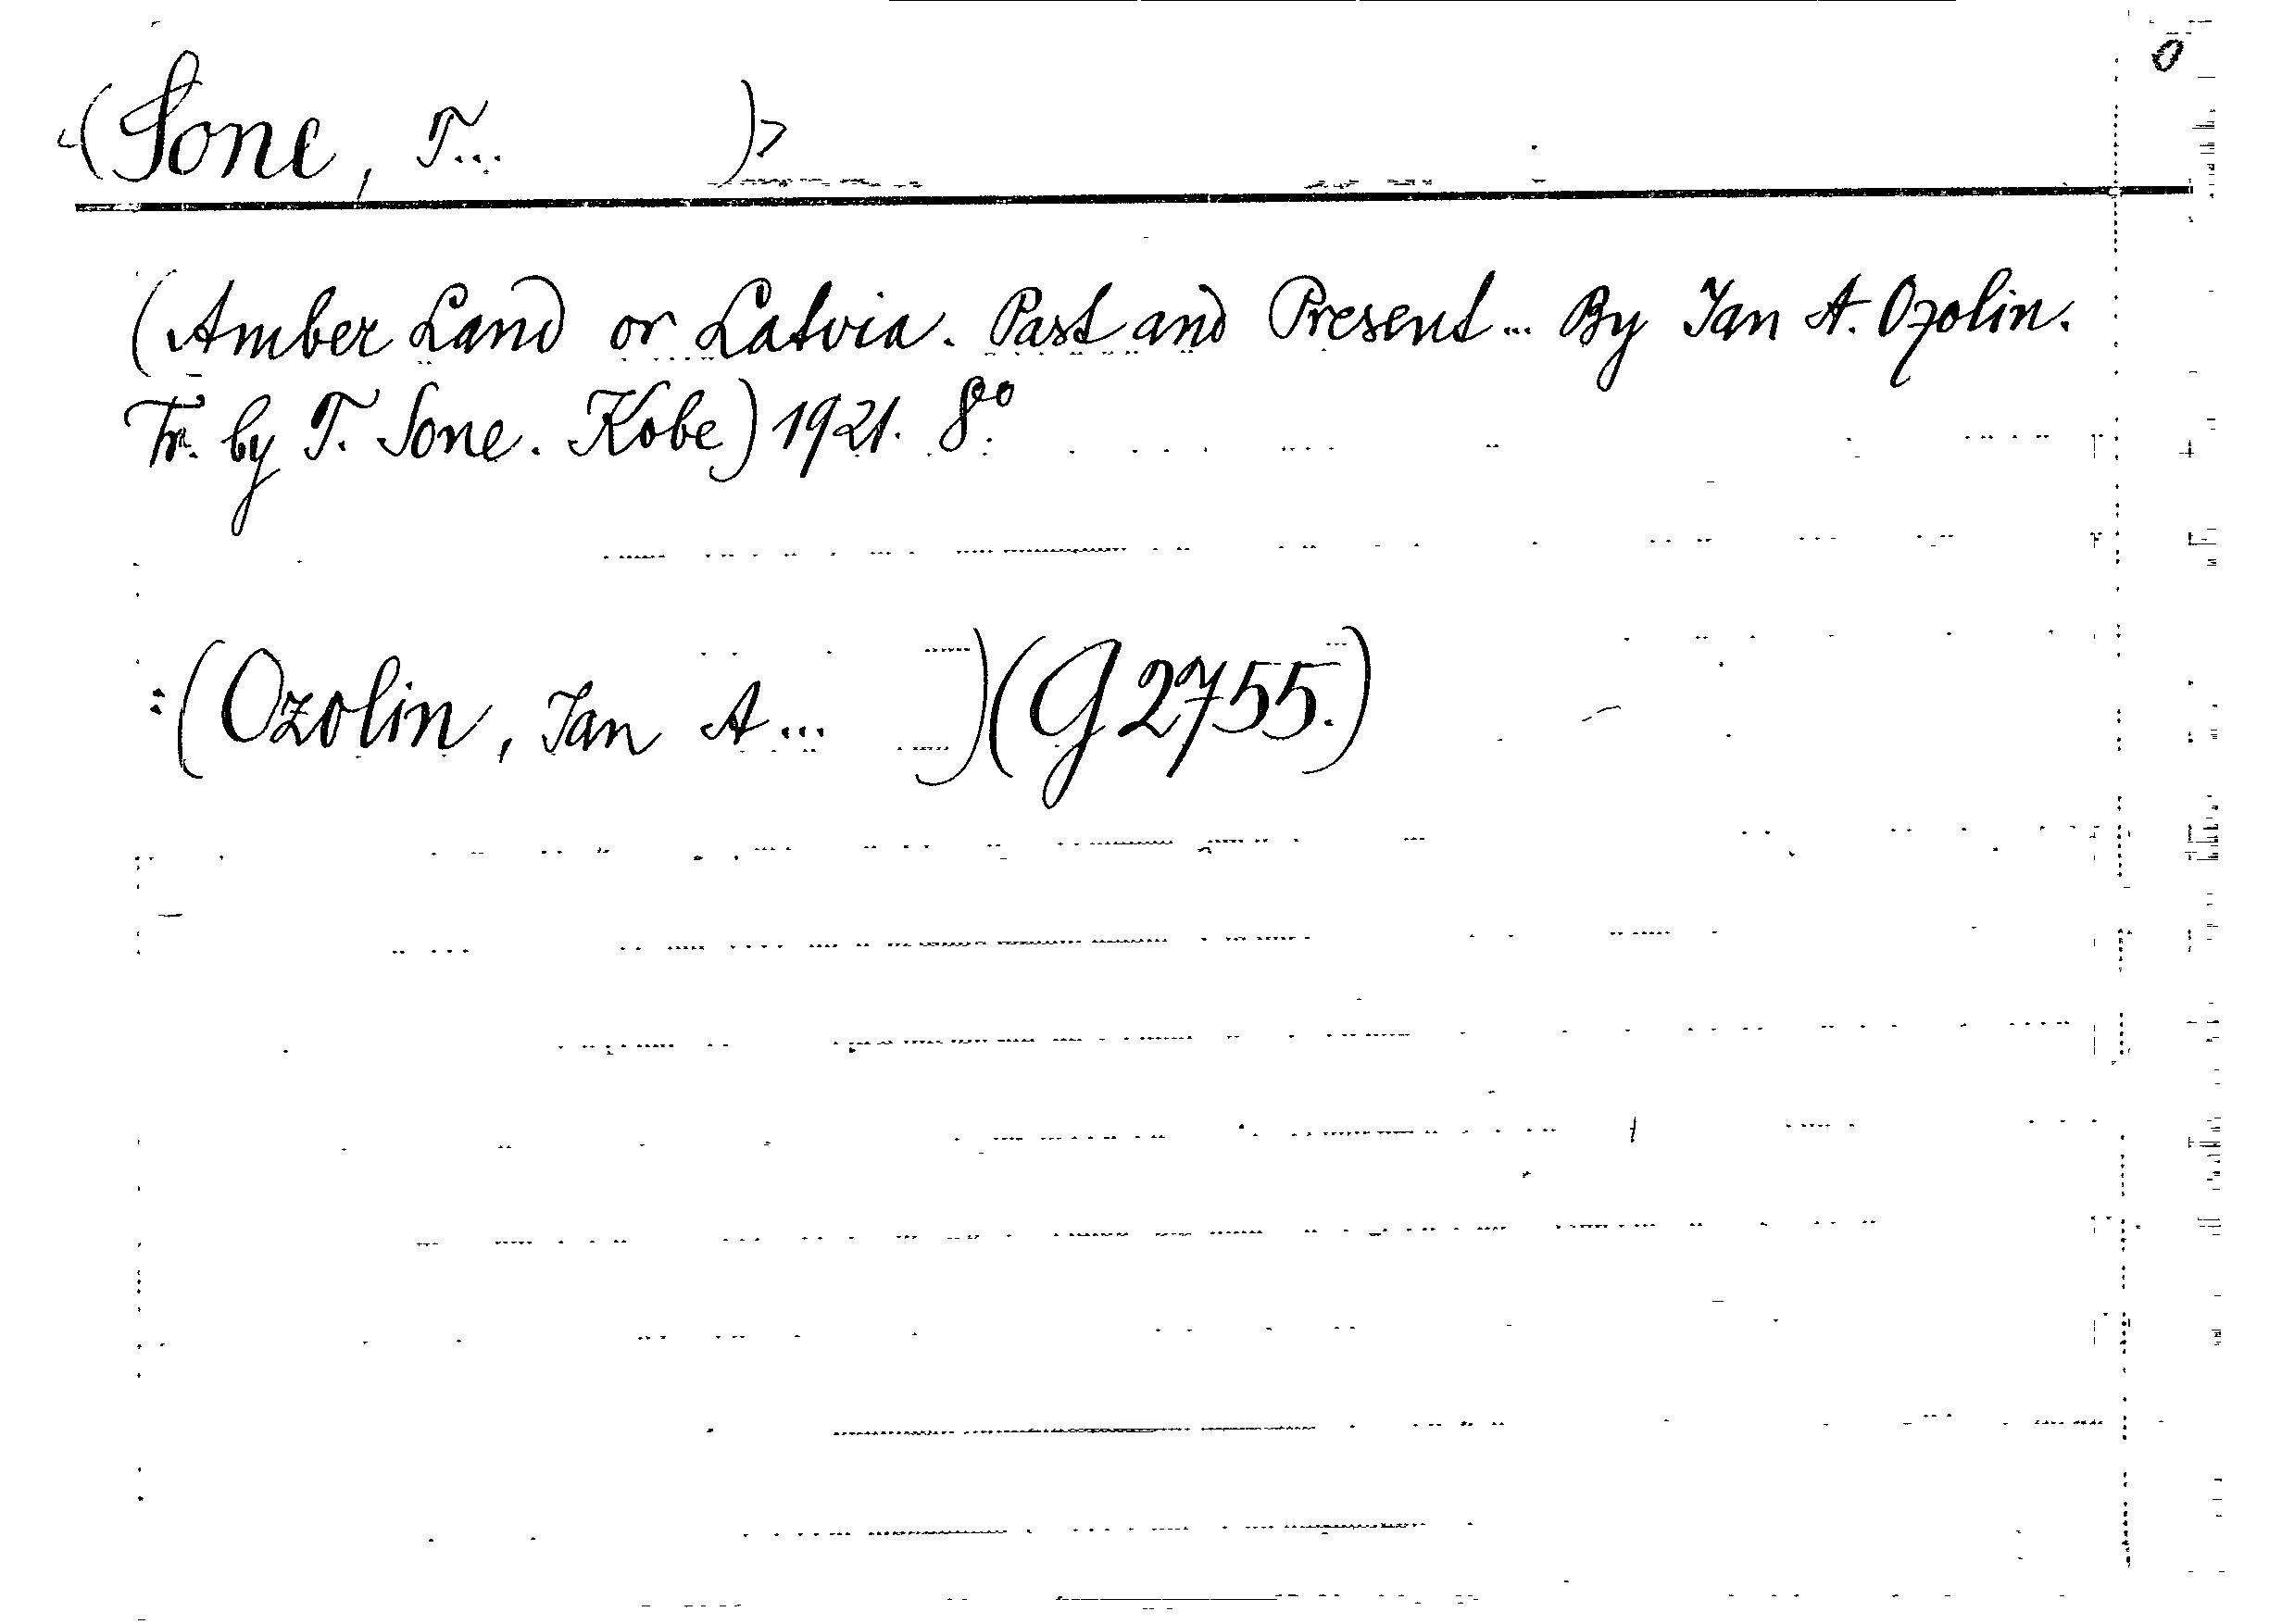 <(Sone, T... )>
0
(Amber Land or Latvia. Past and Present... By Jan A. Ozolin.
Tr. by T. Sone. Kobe) 1921. 8°.
:(Ozolin, Jan A... )(G 2755.)